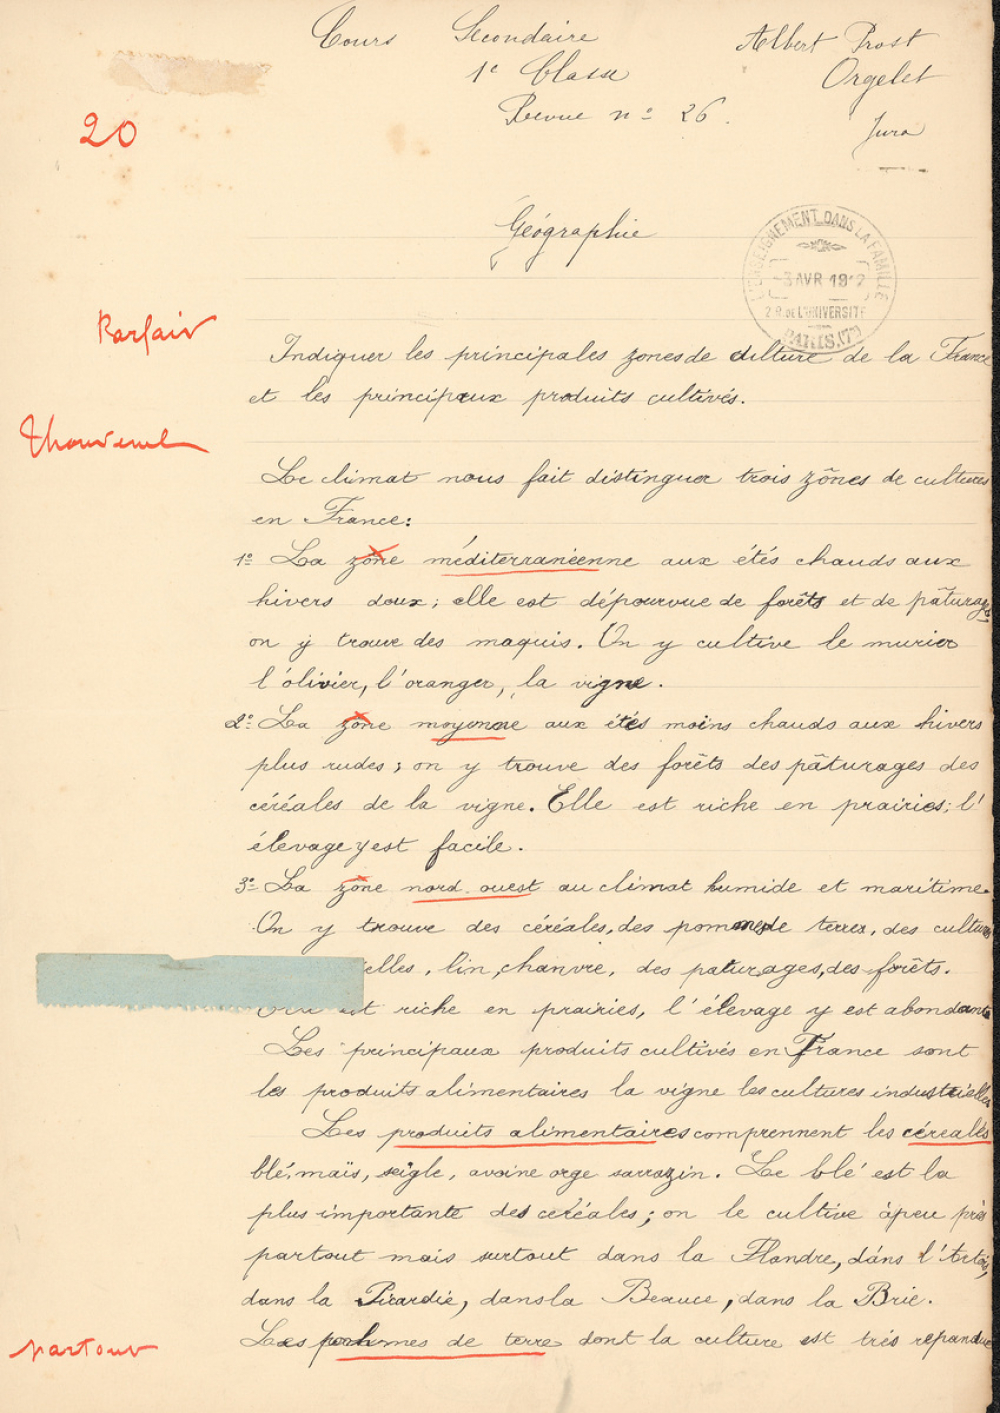 Cours Secondaire
Albert Prost
1e Classe
Orgelet
Revue no 26.
Jura
20
Géographie
L'ENSEIGNEMENT DANS LA FAMILLE
3 AVR 19 2
2 R. DE L'UNIVERSITÉ
PARIS (7e)
Parfait
Indiquer les principales zones de culture de la France
et les principaux produits cultivés.
Le climat nous fait distinguer trois zônes de cultures
en France:
1o La zône méditerranéenne aux étés chauds aux
hivers doux; elle est dépourvue de forêts et de pâturages
on y trouve des maquis. On y cultive le murier
l'olivier, l'oranger, la vigne.
2o La zône moyenne aux étés moins chauds aux hivers
plus rudes; on y trouve des forêts des pâturages des
céréales de la vigne. Elle est riche en prairies; l'
élevage y est facile.
3o La zône nord ouest au climat humide et maritime.
On y trouve des céréales, des pommes de terres, des cultures
ielles, lin, chanvre, des paturages, des forêts.
est riche en prairies, l'élevage y est abondant
Les principaux produits cultivés en France sont
les produits alimentaires la vigne les cultures industrielles
Les produits alimentaires comprennent les céréales
blé, maïs, seigle, avoine orge sarrazin. Le blé est la
plus importante des céréales; on le cultive à peu près
partout mais surtout dans la Flandre, dans l'Artois,
dans la Picardie, dans la Beauce, dans la Brie.
Les pommes de terre dont la culture est très repandue
partout